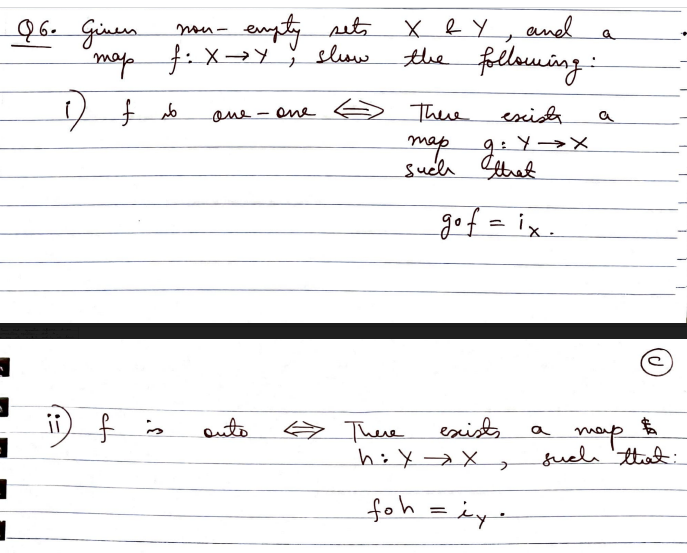 Q6. Given non-empty sets X & Y, and a
map f: X → Y, show the following:
i) f is one-one ⟺ There exists a
map g: Y → X
such that
g∘f = i_X.
C
ii) f is onto ⟺ There exists a map
h: Y → X, such that:
f∘h = i_Y.